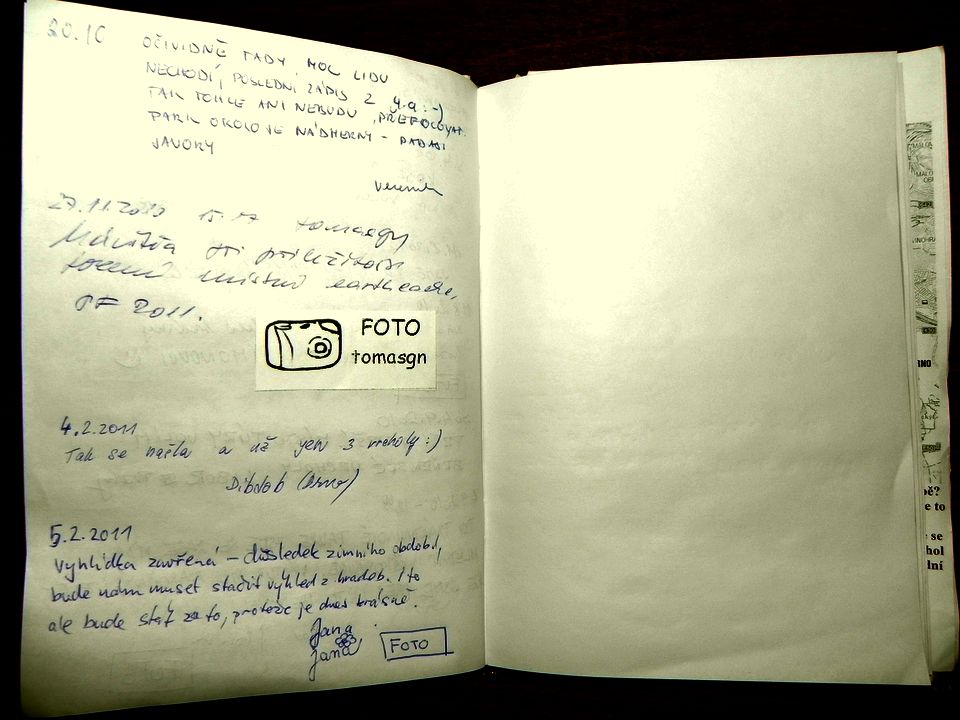 20.10 OČIVIDNĚ TADY MOC LIDU
NECHODÍ, POSLEDNÍ ZÁPIS Z 4.9. :-)
TAK TOHLE ANI NEBUDU PŘEFOCOVAT.
PARK OKOLO JE NÁDHERNÝ - PADAJÍ
JAVORY
27.11.2010 15.17 tomasgn
Návštěva při příležitosti
místní earthcache,
PF 2011.
FOTO
tomasgn
4.2.2011
Tak se našla a už jen 3 vrcholy :)
Dibdob (Brno)
5.2.2011
Vyhlídka zavřená - důsledek zimního období,
bude nám muset stačit výhled z hradeb. I to
ale bude stát za to, protože je dnes krásně.
Jana
Jana
FOTO
MALO
INOHRA
RNO
bě?
e to
se
hol
lní